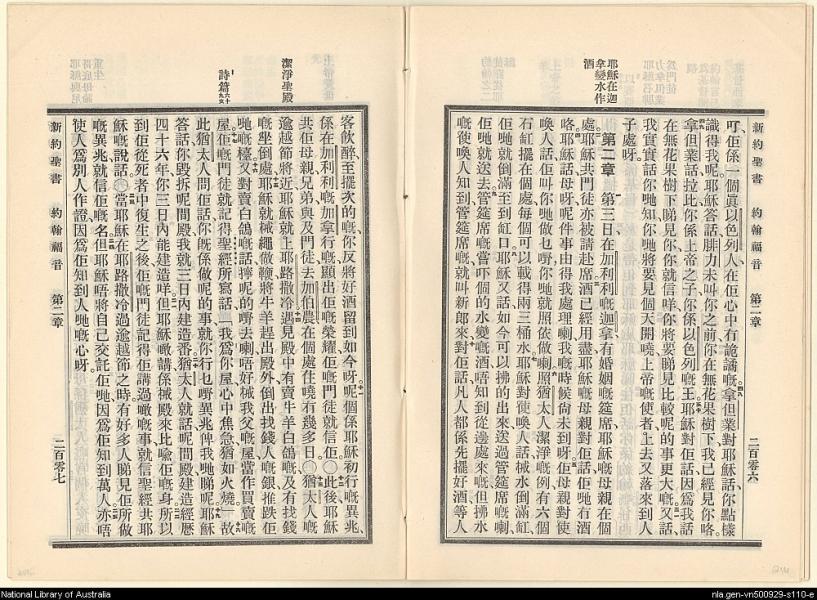 新約聖書 約翰福音 第二章 二百零六
吖、佢係一個眞以色列人、在佢心中冇詭譎嘅、拿但業對耶穌話、你點樣
識得我呢、耶穌答話、腓力未叫你之前、你在無花果樹下、我已經見你咯、
拿但業話、拉比、你係上帝之子、你係以色列嘅王、耶穌對佢話、因爲我話
在無花果樹下睇見你、你就信咩、你將要睇見比較呢的事更大嘅、又話、
我實實話你哋知、你哋將要見個天開嘵、上帝嘅使者、上去又落來到人
子處呀、
耶穌在迦
拿變水作
酒
第二章 第三日在加利利嘅迦拿、有婚姻嘅筵席、耶穌嘅母親在個
處、耶穌共門徒、亦被請赴席、酒已經用盡、耶穌嘅母親對佢話、佢哋有酒
咯、耶穌話、母呀、呢件事由得我處理喇、我嘅時候尙未到呀、佢母親對使
喚人話、佢叫你哋做乜嘢、你哋就照依做喇、照猶太人潔淨嘅例、有六個
石缸擺在個處、每個可以載得兩三桶水、耶穌對使喚人話、械水倒滿缸、
佢哋就倒滿至到缸口、耶穌又話、如今可以拂的出來、送過管筵席嘅喇、
佢哋就送去、管筵席嘅嘗吓個的水變嘅酒、唔知到從邊處來嘅、但拂水
嘅使喚人知到、管筵席嘅就叫新郎來、對佢話、凡人都係先擺好酒、等人
客飲醉、至擺次的嘅、你反將好酒留到如今呀、呢個係耶穌初行嘅異兆、
係在加利利嘅加拿行嘅、顯出佢嘅榮耀、佢嘅門徒就信佢、〇此後耶穌
共佢母親兄弟與及門徒、去加伯農、在個處住嘵有幾多日、〇猶太人嘅
潔淨聖殿
逾越節將近、耶穌就上耶路撒冷、遇見殿中有賣牛羊白鴿嘅、及有找錢
嘅坐倒處、耶穌就械繩做鞭、將牛羊趕出殿外、倒出找錢人嘅銀、推跌佢
哋嘅檯、又對賣白鴿嘅話、擰呢的嘢去喇、唔好械我父嘅屋、當作買賣嘅
詩篇六十九、九
屋、佢嘅門徒就記得聖經所寫話、我爲你屋心中焦急、猶如火燒、故
此猶太人問佢話、你旣係做呢的事、就你行乜嘢異兆俾我哋睇呢、耶穌
答話、你毀拆呢間殿、我就三日內建造番、猶太人就話、呢間殿建造經歷
四十六年、你三日內能建造咩、但耶穌噉講、係械殿來比喻佢嘅身、所以
到佢從死者中復生之後、佢嘅門徒記得佢講過噉嘅事、就信聖經共耶
穌嘅說話、〇當耶穌在耶路撒冷過逾越節之時、有好多人睇見佢所做
嘅異兆、就信佢嘅名、但耶穌唔將自己交託佢哋、因爲佢知到萬人、亦唔
使人爲別人作證、因爲佢知到人哋嘅心呀、
新約聖書 約翰福音 第二章 二百零七
National Library of Australia
nla.gen-vn500929-s110-e